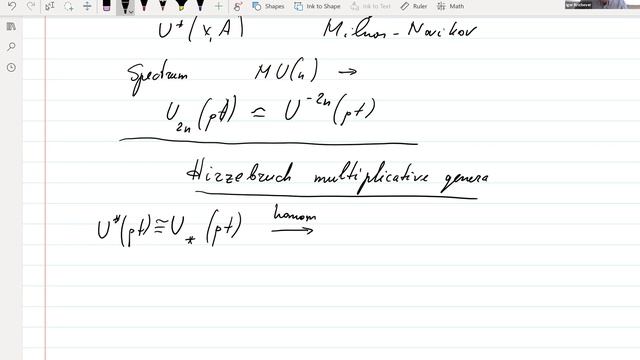 Shapes Ink to Shape Ink to Text Ruler Math
U*(X,A) Milnor-Novikov
Spectrum MU(n) →
U₂ₙ(pt) ≃ U⁻²ⁿ(pt)
Hirzebruch multiplicative genera
U*(pt) ≅ U_*(pt) homom →